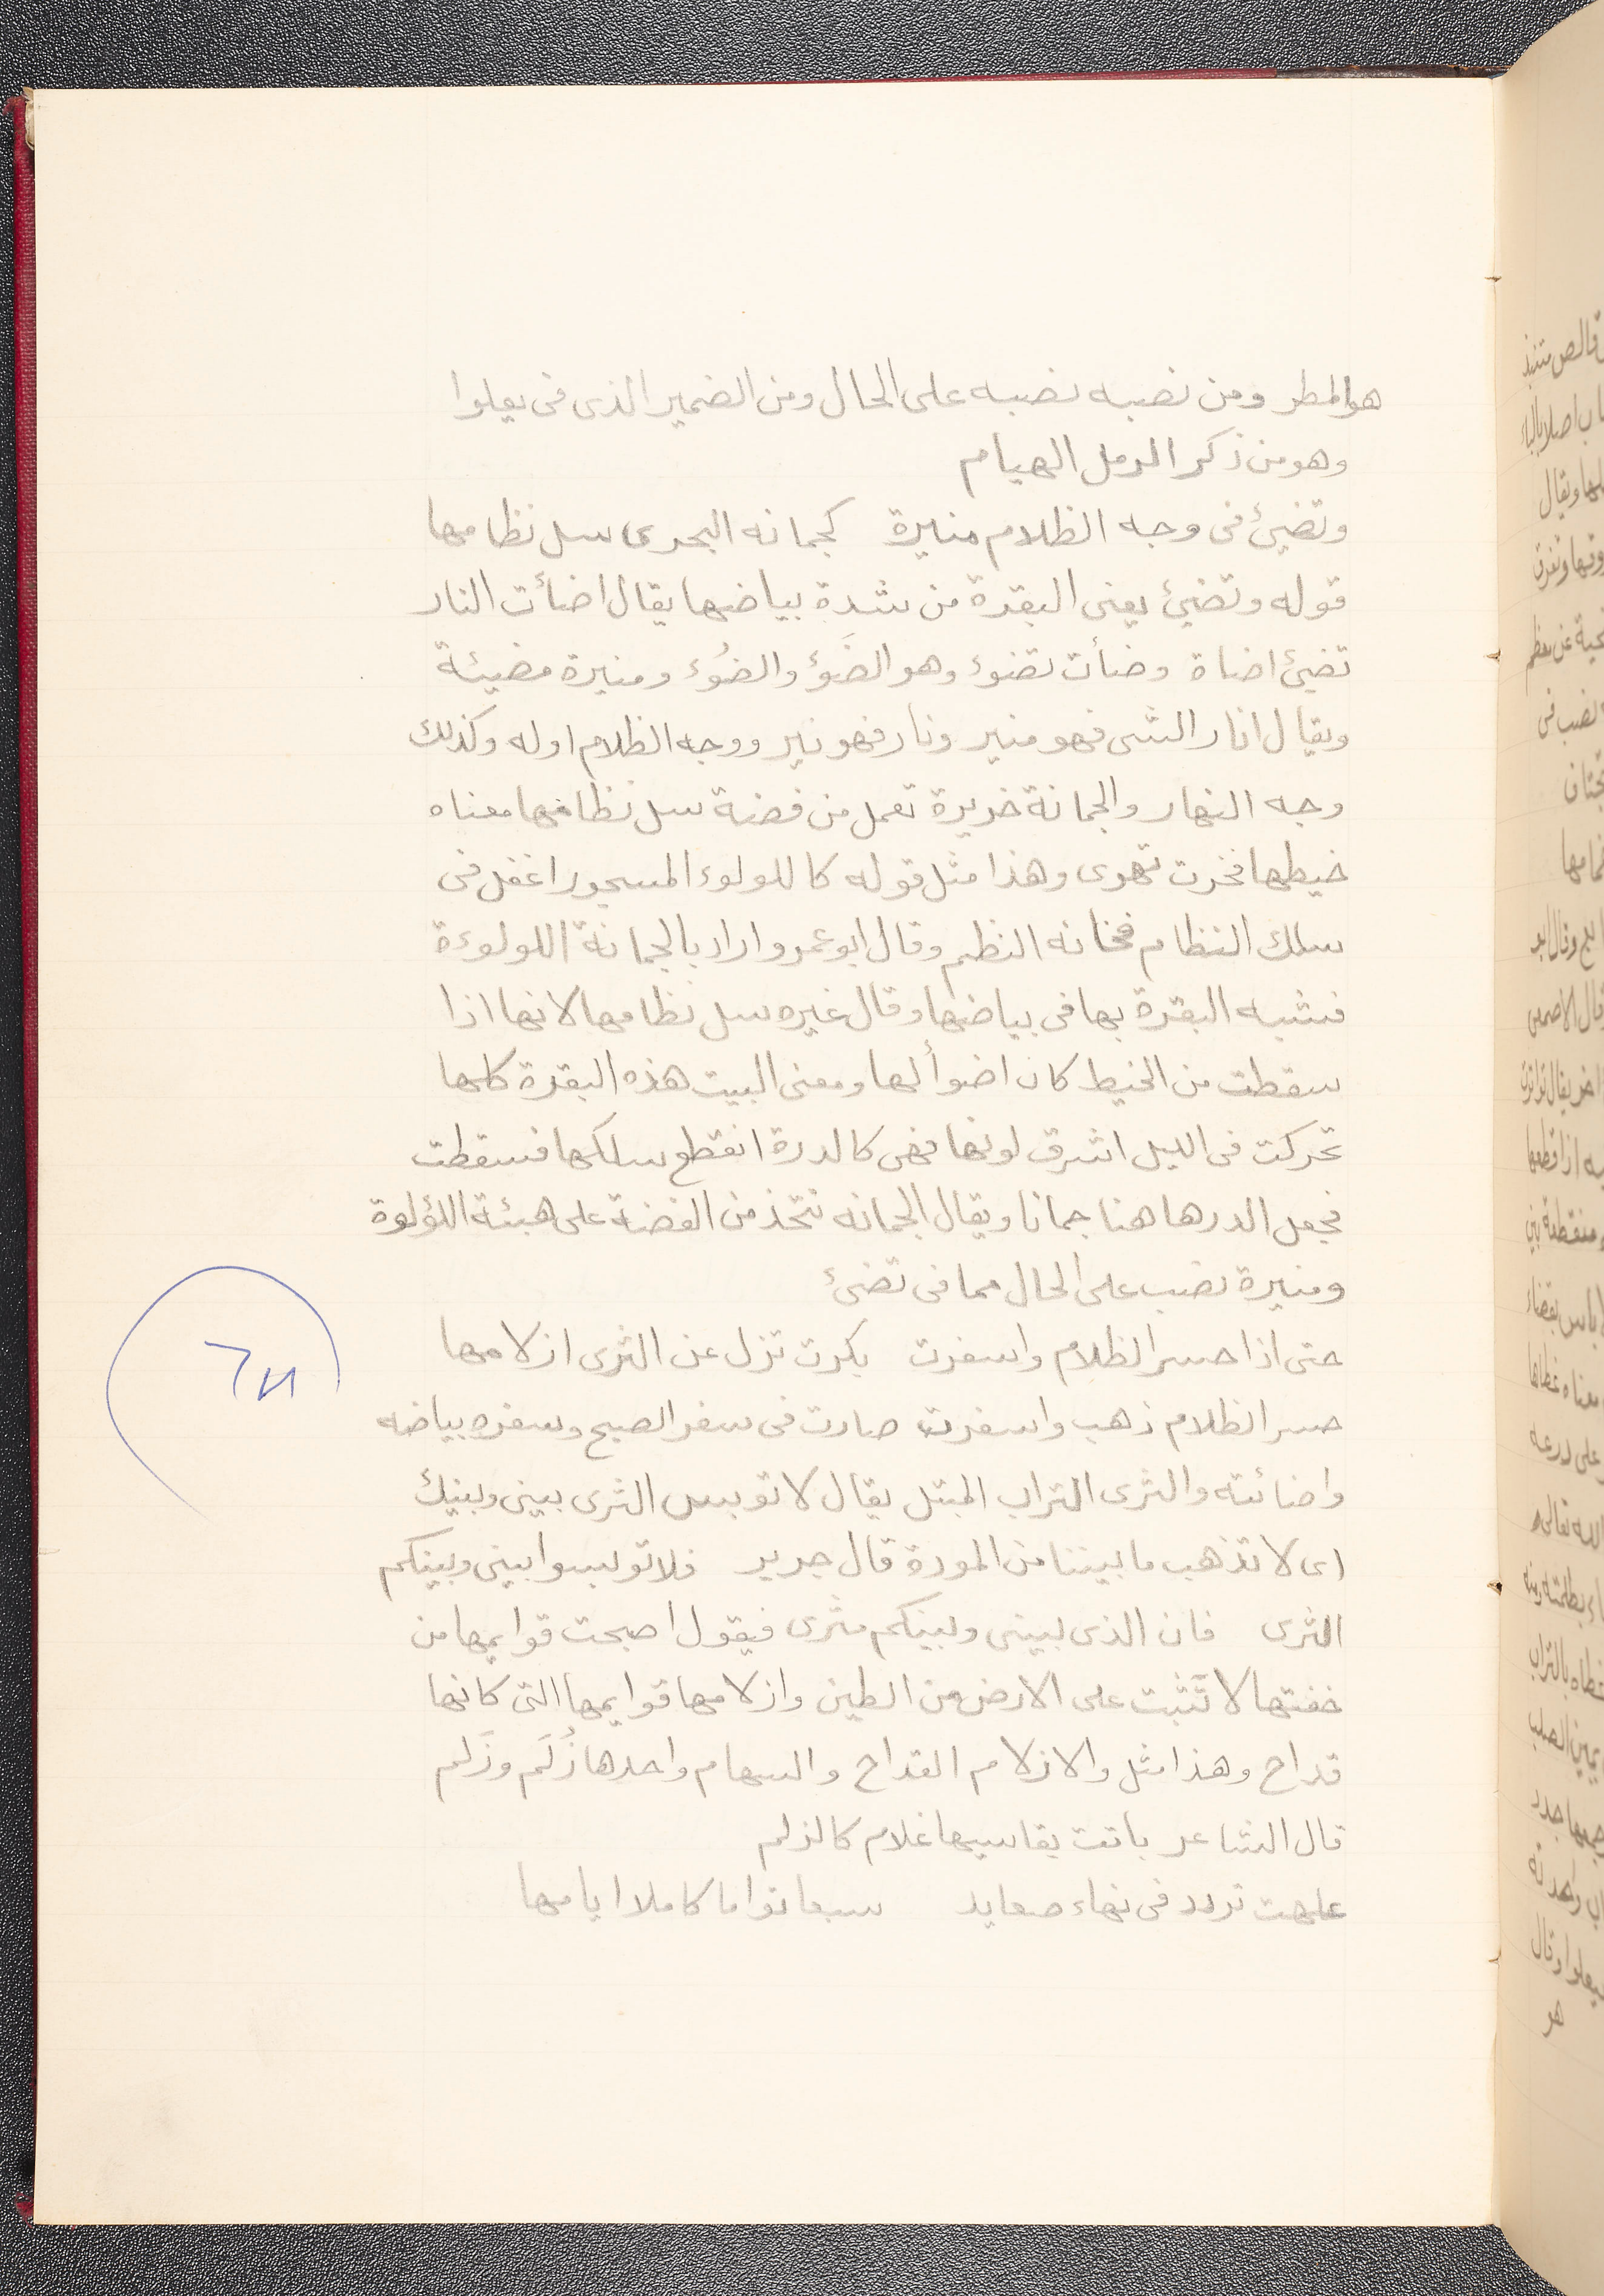 هو المطر ومن نصبه نصبه على الحال ومن الضمير الذى فى يعلوا
وهو من ذكر الرمل الهيام
وتضيئ فى وجه الظلام منيرة كجمانه البحرى سل نظامها
قوله وتضيئ يعنى البقرة من شدة بياضها يقال اضأت النار
تضيئ اضاة وضأت تضوء وهو الضَوؤ والضُوء ومنيرة مضيئة
ويقال انار الشى فهو منير ونار فهو نير ووجه الظلام اوله وكذلك
وجه النهار والجمانة خريرة تعمل من فضة سل نظامها معناه
خيطها فخرت تهوى وهذا مثل قوله كاللولوء المسجور اغفل فى
سلك النظام فخانه النظم وقال ابو عمرو اراد بالجمانة اللولوءة
فشبه البقرة بها فى بياضها وقال غيره سل نظامها لانها اذا
سقطت من الخيط كان اضوأ لها ومعنى البيت هذه البقرة كلما
تحركت فى الليل اشرق لونها فهى كالدرة انقطع سلكها فسقطت
فجعل الدر هاهنا جمانا ويقال الجمانه تتخذ من الفضة على هيئة اللؤلوة
ومنيرة نصب على الحال مما فى تضئ
حتى اذا حسر الظلام واسفرت بكرت تزل عن الثرى ازلامها
حسر الظلام ذهب واسفرت صارت فى سفر الصبح وسفره بياضه
واضائته والثرى التراب المبتل يقال لا توبس الثرى بينى وبينك
اى لا تذهب ما بيننا من المودة قال جرير فلا توبسوا بينى وبينكم
الثرى فان الذى بينى وبينكم مثرى فيقول اصبحت قوايمها من
خفتها لا تثبت على الارض من الطين وازلامها قوايمها التى كانها
قداح وهذا مثل والازلام القداح والسهام واحدها زُلَم وزَلم
قال الشاعر باتت يقاسيها غلام كالزلم
علهت تردد فى نهاء صعايد سبعا تواما كاملا ايامها
٦٢